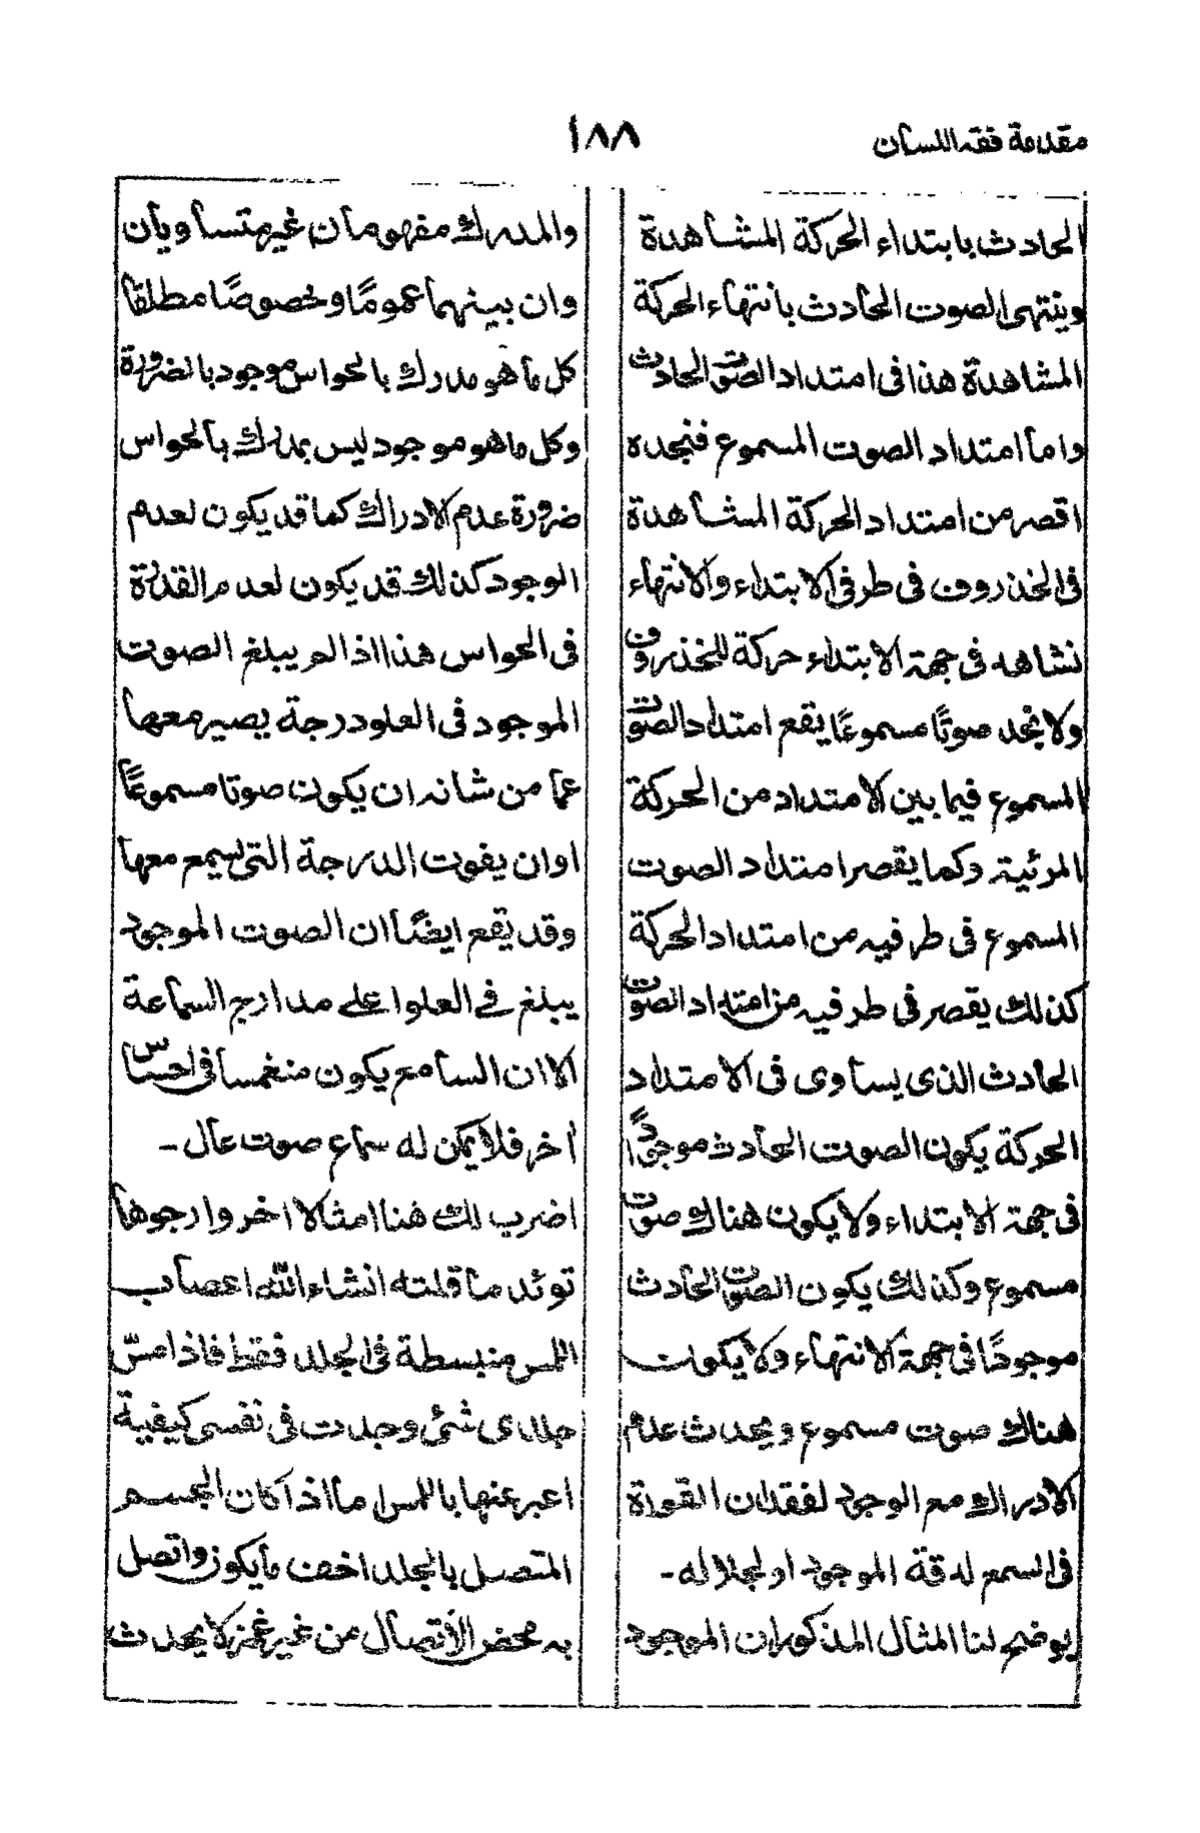 مقدمة فقه اللسان
١٨٨
الحادث بابتداء الحركة المشاهدة
وينتهى الصوت الحادث بانتهاء الحركة
المشاهدة هذا فى امتداد الصوت الحادث
واما امتداد الصوت المسموع فنجده
اقصر من امتداد الحركة المشاهدة
فى الخذروف فى طرفى الابتداء والانتهاء
نشاهد فى جهة الابتداء حركة للخذروف
ولا نجد صوتًا مسموعًا يقع امتداد الصوت
المسموع فيما بين الامتداد من الحركة
المرئية وكما يقصر امتداد الصوت
المسموع فى طرفيه من امتداد الحركة
كذلك يقصر فى طرفيه من امتداد الصوت
الحادث الذى يساوى فى الامتداد
الحركة يكون الصوت الحادث موجودًا
فى جهة الابتداء ولا يكون هناك صوت
مسموع وكذلك يكون الصوت الحادث
موجودًا فى جهة الانتهاء ولا يكون
هناك صوت مسموع ويحدث عدم
الادراك مع الوجود لفقدان القوة
فى السمع لدقة الموجود او لجلاله -
يوضح لنا المثال المذكور ان الموجود
والمدرك مفهومان غير متساويان
وان بينهما عمومًا وخصوصًا مطلقًا
كل ما هو مدرك بالحواس موجود بالضرورة
وكل ما هو موجود ليس بمدرك بالحواس
ضرورة عدم الادراك كما قد يكون لعدم
الوجود كذلك قد يكون لعدم القدرة
فى الحواس هذا اذا لم يبلغ الصوت
الموجود فى العلو درجة يصير معها
عما من شانه ان يكون صوتا مسموعًا
او ان يفوت الدرجة التى يسمع معها
وقد يقع ايضًا ان الصوت الموجود
يبلغ فے العلو اعلى مدارج السماعة
الا ان السامع يكون منغمسا فى احساس
أخر فلا يمكن له سماع صوت عال -
اضرب لك هنا امثالا اخر وارجوها
توئد ما قلته انشاء الله اعصاب
اللمس منبسطة فى الجلد فقط فاذا مسّ
جلدى شئ وجدت فى نفسى كيفية
اعبر عنها باللمس اما اذا كان الجسم
المتصل بالجلد اخف ما يكون واتصل
به محض الاتصال من غير غمز لا يحدث